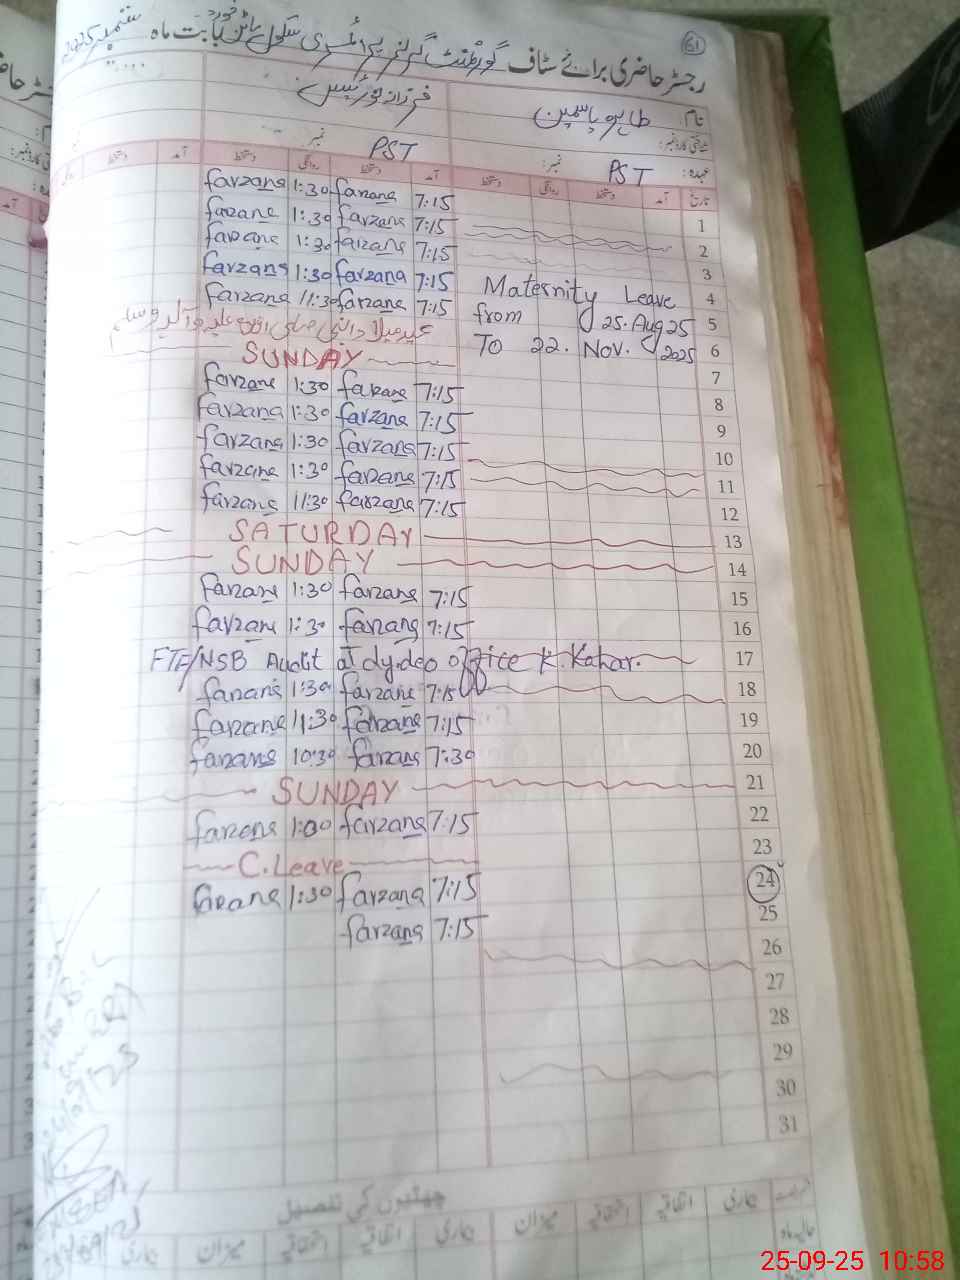 61
رجسٹر حاضری برائے سٹاف گورنمنٹ گرلز پرائمری سکول بابت ماہ ستمبر 2025
نام: طاہرہ یاسمین
عہدہ: PST نمبر: PST نمبر
تاریخ آمد دستخط روانگی دستخط آمد دستخط روانگی دستخط آمد دستخط
1 7:15 farzana 1:30 farzana
2 7:15 farzana 1:30 farzana
3 7:15 farzana 1:30 farzana
4 7:15 farzana 1:30 farzana
5 7:15 farzana 11:30 farzana
Maternity Leave
from 25.Aug 25
To 22. Nov. 2025
6 عید میلاد النبی صلی اللہ علیہ وآلہ وسلم
7 SUNDAY
8 7:15 farzana 1:30 farzana
9 7:15 farzana 1:30 farzana
10 7:15 farzana 1:30 farzana
11 7:15 farzana 1:30 farzana
12 7:15 farzana 11:30 farzana
13 SATURDAY
14 SUNDAY
15 7:15 farzana 1:30 farzana
16 7:15 farzana 1:30 farzana
17 FTF/NSB Audit at dy.deo office K.Kahar.
18 7:15 farzana 1:30 farzana
19 7:15 farzana 11:30 farzana
20 7:30 farzana 10:30 farzana
21 SUNDAY
22 7:15 farzana 1:00 farzana
23 C.Leave
24 7:15 farzana 1:30 farzana
25 7:15 farzana
26
27
28
29
30
31
چھٹیوں کی تفصیل
اتفاقیہ میزان
25-09-25 10:58